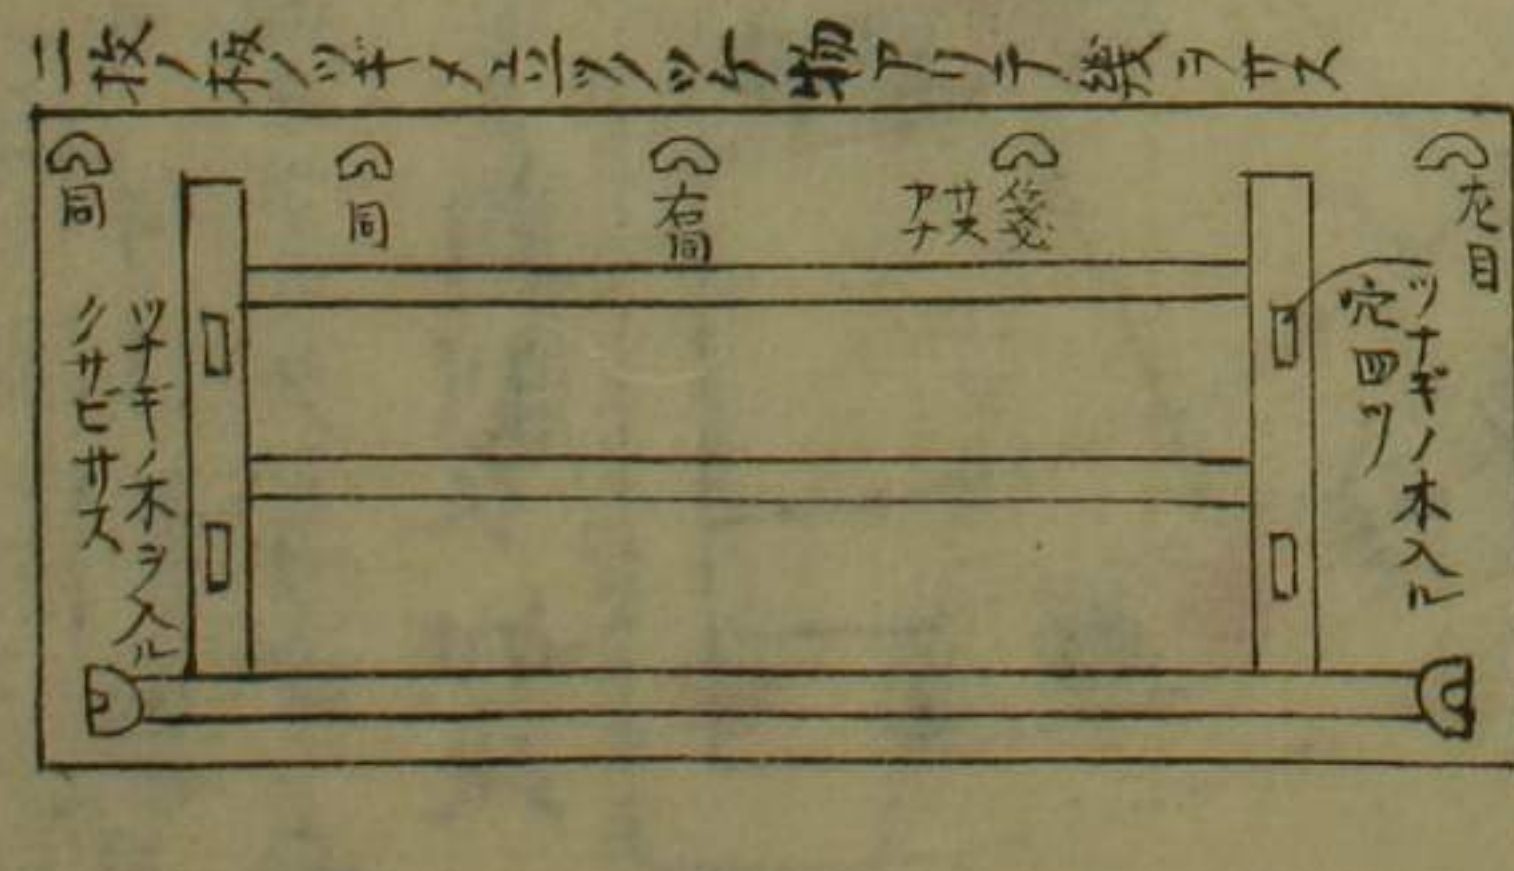 二枚ノ板ノツギメニ五ツノツケ物アリテ機ヲサス
左目
ツナギノ木入ル
穴四ツ
筬
サス
アナ
右同
同
同
ツナギノ木ヲ入ル
ノサビサス